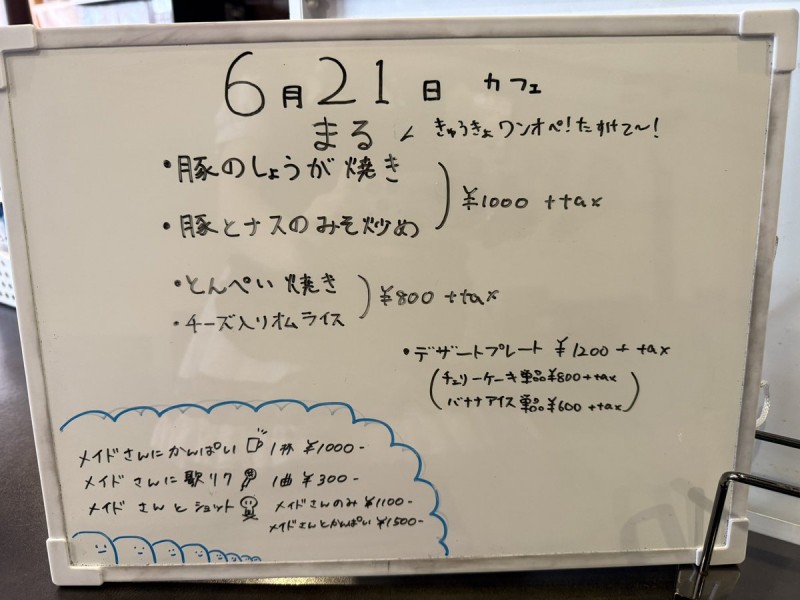 6月21日 カフェ
まる きゅうきょワンオペ!たすけて〜!
・豚のしょうが焼き
・豚とナスのみそ炒め
¥1000 +tax
・とんぺい焼き
・チーズ入りオムライス
¥800 +tax
・デザートプレート ¥1200 + tax
(チェリーケーキ単品¥800+tax
バナナアイス単品¥600+tax)
メイドさんにかんぱい 1杯 ¥1000-
メイドさんに歌リク 1曲 ¥300-
メイドさんとショット メイドさんのみ¥1100-
メイドさんとかんぱい ¥1500-